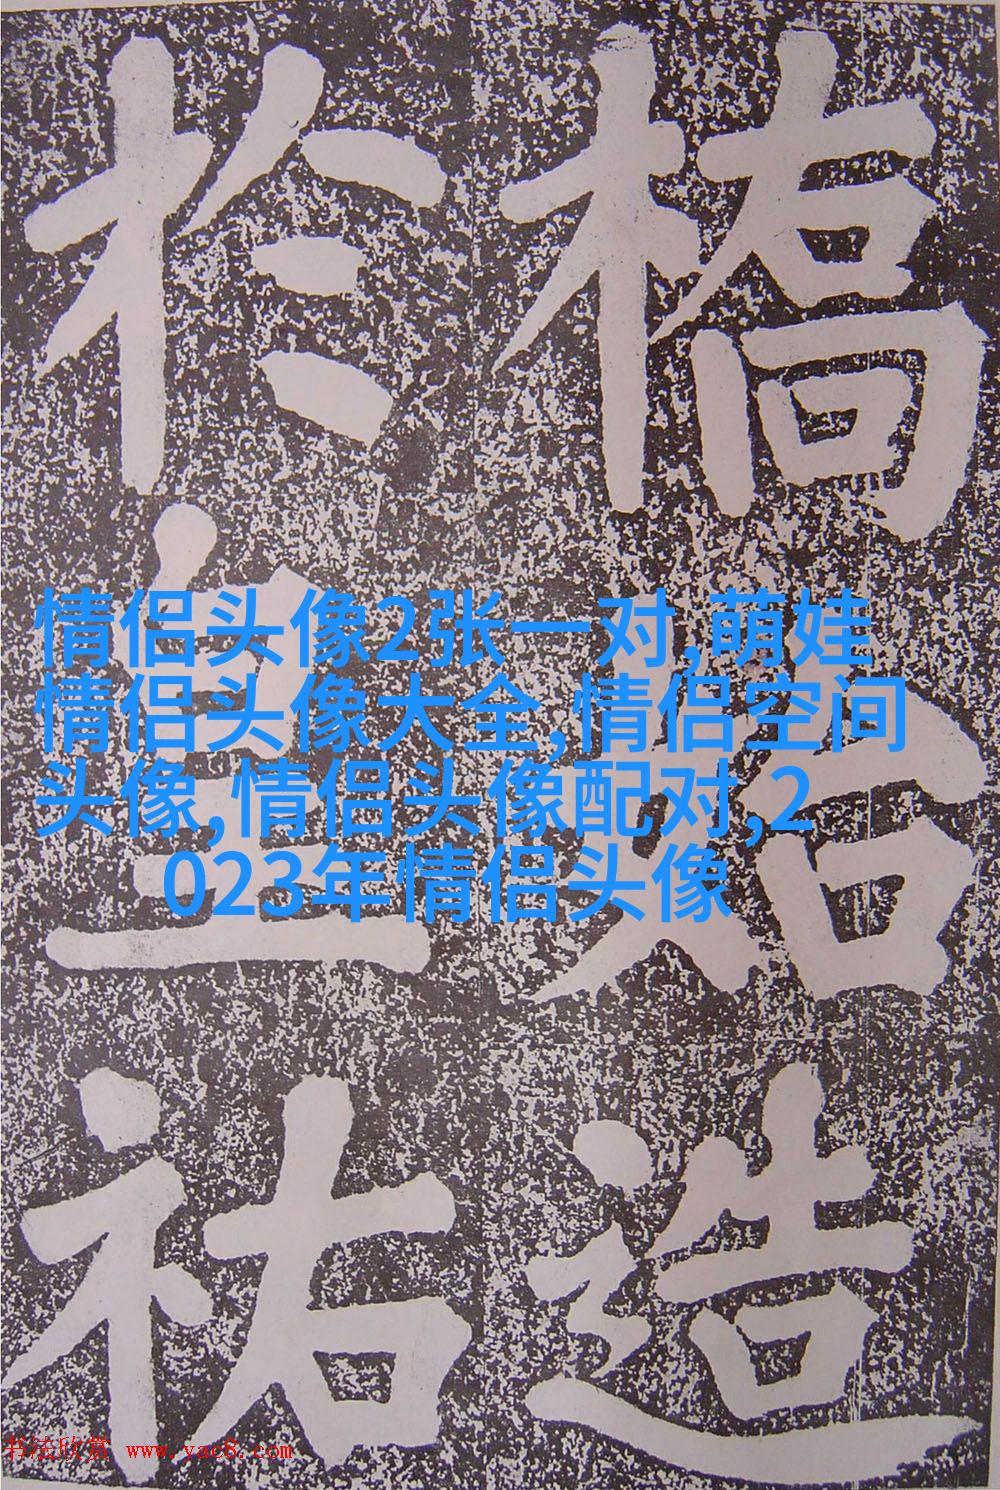 橋始造
於皇祐
情侣头像2张一对,萌娃
情侣头像大全,情侣空间
头像,情侣头像配对,2
023年情侣头像
书法欣赏 www.yac8.com